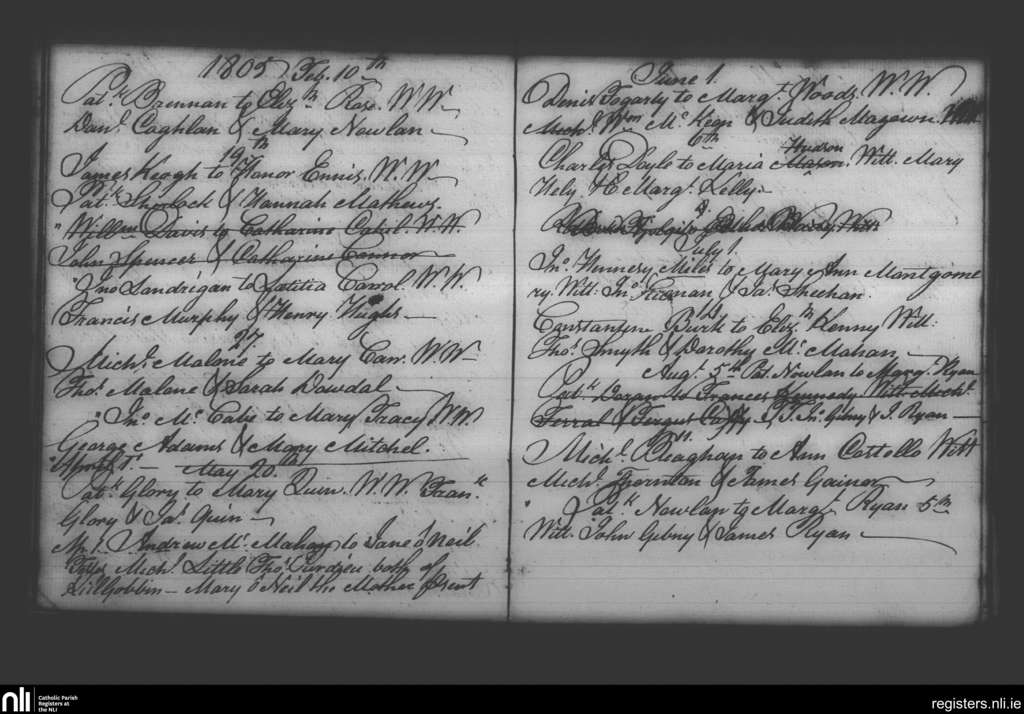 1805 Feb. 10th
Patk. Brennan to Elizth. Rose. WW.
Danl. Coghlan & Mary Nowlan
19th
James Keogh to Honor Ennis. W.W
Patk. Sherlock & Hannah Mathews.
" Willm. Davis to Catharine Cahil. W.W.
John Spencer & Catharine Connor
" Jno Landrigan to Letitia Carrol. W.W.
Francis Murphy & Henry Hughs
27
Michl. Malone to Mary Carr. W.W
Thos. Malone & Sarah Dowdal
" Jno. Mc. Cabe to Mary Tracy WW.
George Adams & Mary Mitchel.
" April 1st. May 20th
Patk. Glory to Mary Quin. W.W. Frank.
Glory & Jas. Quin
Ap. 1. Andrew Mc. Mahon to Jane o Neil.
Michl. Little Thos. both of
Mary o Neil the Mother present
June 1.
Denis Fogarty to Margt. Woods. W.W.
Michl. Wm Mc. Keon & Judith Magawn.
6th
Charles Doyle to Maria Hudson Mason. Witt. Mary
Hely & Margt. Kelly.
July 1.
Jno. Hennery Miles to Mary Ann Montgome
ry. Witt: Jno. Kiernan & Jas. Sheehan.
14
Constantine Burk to Elizth. Kenny Witt:
Thos. Smyth & Dorothy Mc. Mahan
Augt. 5th Pat. Nowlan to Margt. Ryan
Patk. Dogan to Frances Kennedy Witt. Michl.
Ferral & Fergus Jno. Gibny & J. Ryan
11.
Michl. to Ann Costollo Witt
Michl. Thornton & James Gainor
" Patk. Nowlan to Margt. Ryan 5th
Witt. John Gibny & James Ryan
nli
Catholic Parish
Registers at
the NLI
registers.nli.ie